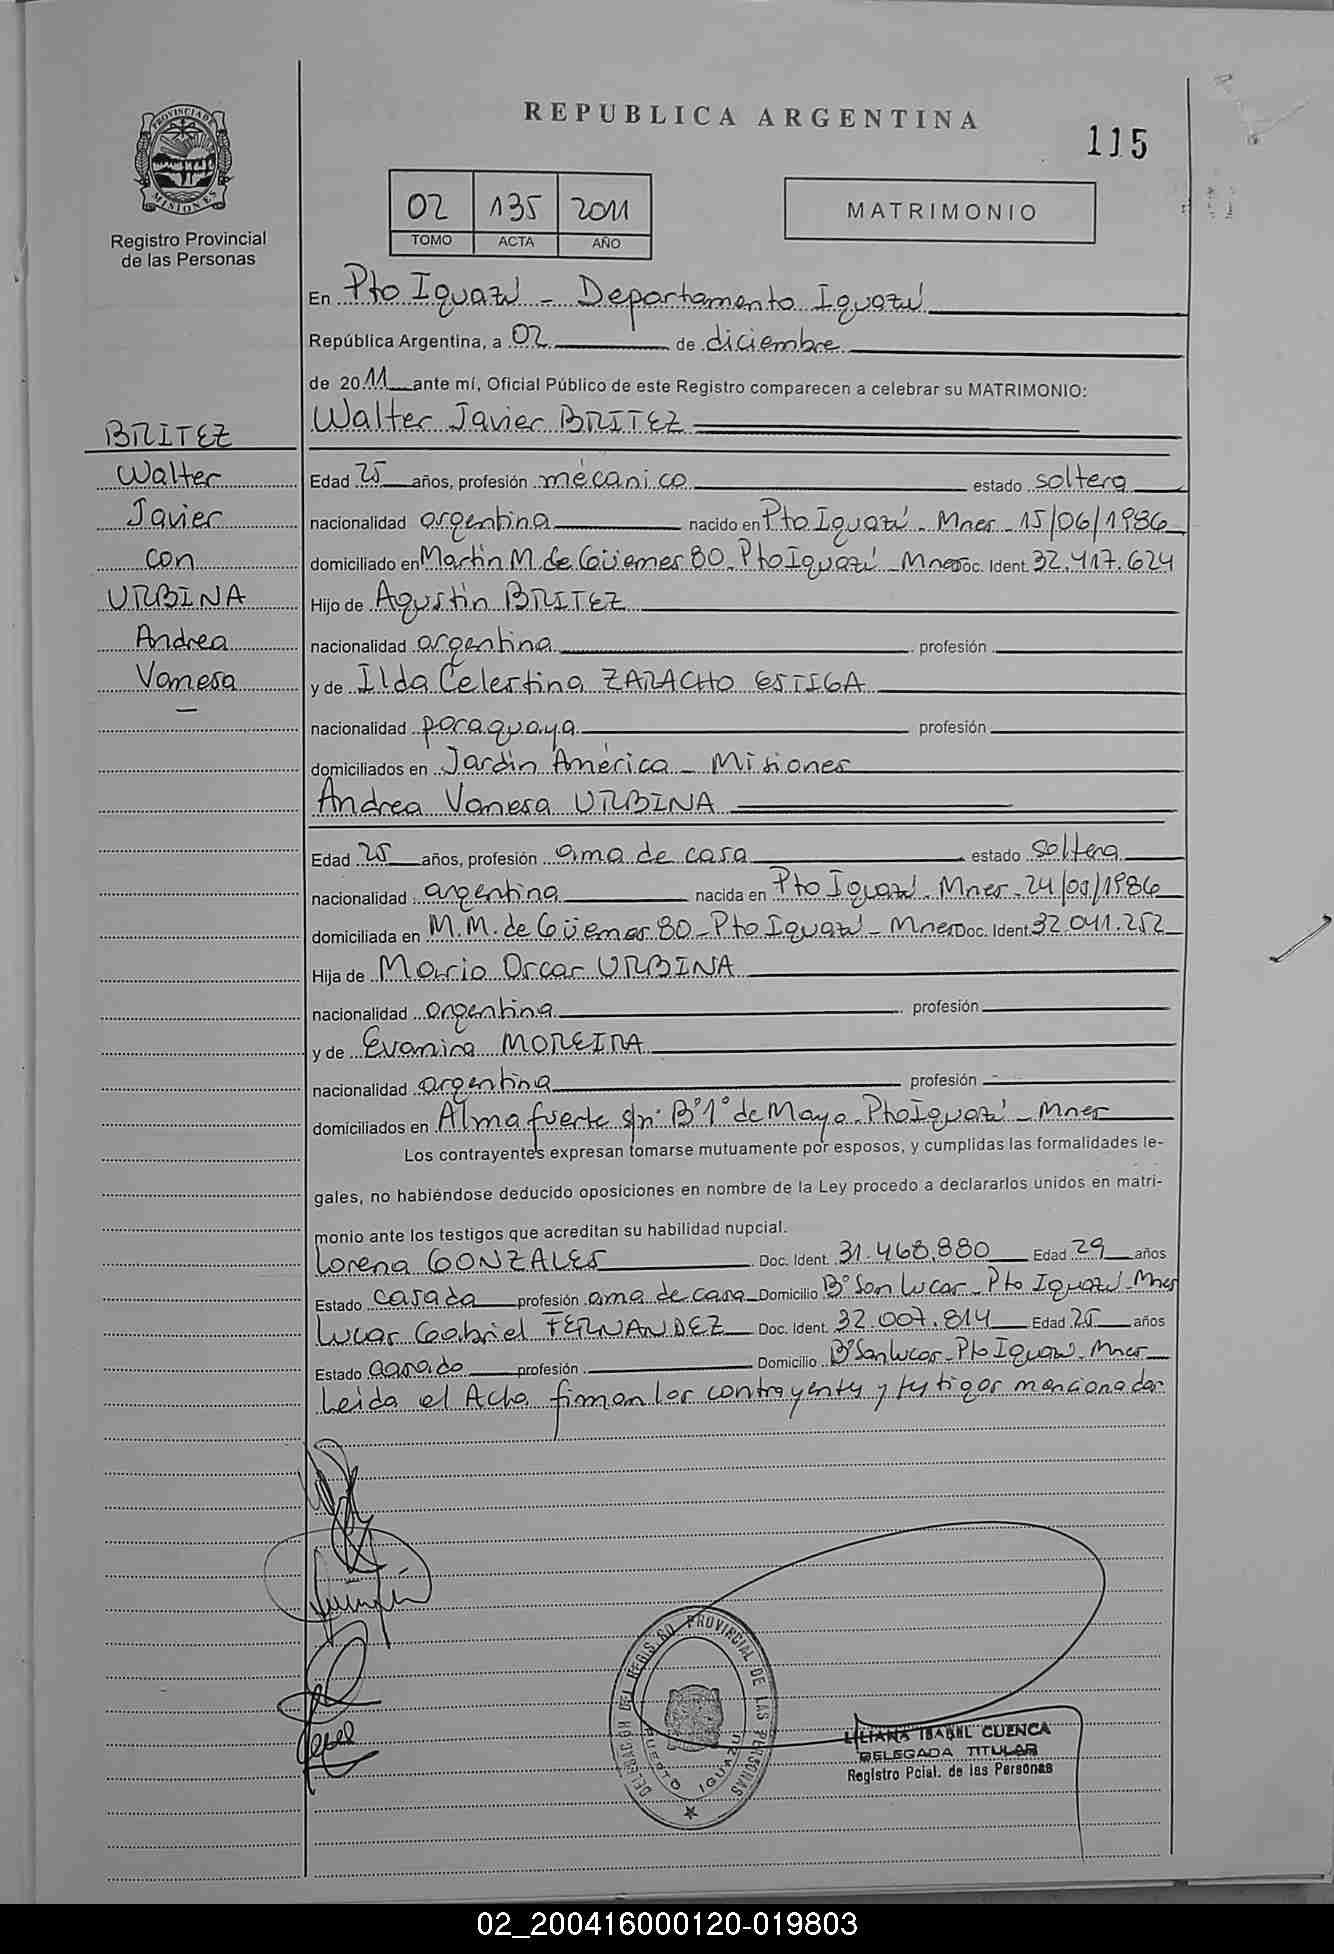 REPUBLICA ARGENTINA
115
PROVINCIA DE MISIONES
Registro Provincial
de las Personas
02 135 2011
TOMO ACTA AÑO
MATRIMONIO
En Pto Iguazú - Departamento Iguazú
República Argentina, a 02 de diciembre
de 2011 ante mí, Oficial Público de este Registro comparecen a celebrar su MATRIMONIO:
BRITEZ
Walter
Javier
con
URBINA
Andrea
Vanesa
Walter Javier BRITEZ
Edad 25 años, profesión mecánico estado soltero
nacionalidad argentina nacido en Pto Iguazú - Mnes - 15/06/1986
domiciliado en Martín M. de Güemes 80 - Pto Iguazú - Mnes Doc. Ident. 32.417.624
Hijo de Agustín BRITEZ
nacionalidad argentina profesión
y de Ilda Celestina ZARACHO ESTIGA
nacionalidad paraguaya profesión
domiciliados en Jardín América - Misiones
Andrea Vanesa URBINA
Edad 25 años, profesión ama de casa estado soltera
nacionalidad argentina nacida en Pto Iguazú - Mnes - 24/01/1986
domiciliada en M.M. de Güemes 80 - Pto Iguazú - Mnes Doc. Ident. 32.041.252
Hija de Mario Oscar URBINA
nacionalidad argentina profesión
y de Evanira MOREIRA
nacionalidad argentina profesión
domiciliados en Almafuerte s/n° B° 1° de Mayo - Pto Iguazú - Mnes
Los contrayentes expresan tomarse mutuamente por esposos, y cumplidas las formalidades le-
gales, no habiéndose deducido oposiciones en nombre de la Ley procedo a declararlos unidos en matri-
monio ante los testigos que acreditan su habilidad nupcial.
Lorena GONZALES Doc. Ident. 31.468.880 Edad 29 años
Estado casada profesión ama de casa Domicilio B° San Lucas - Pto Iguazú - Mnes
Lucas Gabriel FERNANDEZ Doc. Ident. 32.007.814 Edad 25 años
Estado casado profesión Domicilio B° San Lucas - Pto Iguazú - Mnes
Leída el Acta, firman los contrayentes y testigos mencionados
DELEGACIÓN DEL REGISTRO PROVINCIAL DE LAS PERSONAS
PUERTO IGUAZU
LILIANA ISABEL CUENCA
DELEGADA TITULAR
Registro Pcial. de las Personas
02_200416000120-019803